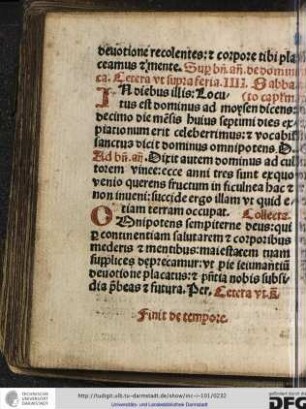 deuotione recolentes: ⁊ corpore tibi pla
ceamus ⁊ mente. Sup bñ. añ. de domini
ca. Cetera vt supra feria. IIII. Sabba
IN diebus illis: Locu- (to capłm.
tus est dominus ad moysen dicens:
decimo die mēsis huius septimi dies ex-
piationum erit celeberrimus: ⁊ vocabit
sanctus dicit dominus omnipotens.
Ad bñ. añ. Dixit autem dominus ad cul
torem vinee: ecce anni tres sunt ex quo
venio querens fructum in ficulnea hac ⁊
non inueni: succide ergo illam vt quid e-
tiam terram occupat. Collecta.
OMnipotens sempiterne deus: qui
per continentiam salutarem ⁊ corporibus
mederis ⁊ mentibus: maiestatem tuam
supplices deprecamur: vt pie ieiunantiū
deuotione placatus: ⁊ pñtia nobis subsi-
dia p̄beas ⁊ futura. Per. Cetera vt
Finit de tempore.
http://tudigit.ulb.tu-darmstadt.de/show/inc-i-101/0232
Universitäts- und Landesbibliothek Darmstadt
TECHNISCHE UNIVERSITÄT DARMSTADT
DFG